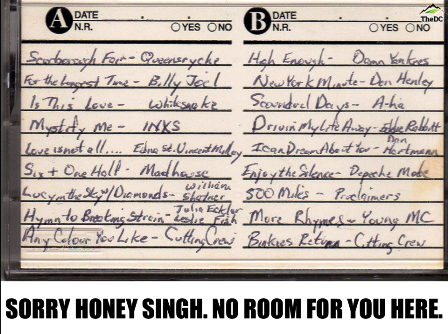 A DATE
N.R. YES NO
B DATE
N.R. YES NO
TheDC
Scarborough Fair - Queensryche
For the Longest Time - Billy Joel
Is This Love - Whitesnake
Mystify Me - INXS
Love is not all.... Edna St. Vincent Millay
Six + One Half - Madhouse
Lucy in the Sky w/ Diamonds - William Shatner
Hymn to Breaking Strain - Julia Ecklar Leslie Fish
Any Colour You Like - Cutting Crew
High Enough - Damn Yankees
New York Minute - Don Henley
Scoundrel Days - A-ha
Drivin My Life Away - Eddie Rabbitt
I Can Dream About You - Dan Hartmann
Enjoy the Silence - Depeche Mode
500 Miles - Proclaimers
More Rhymes - Young MC
Return - Cutting Crew
SORRY HONEY SINGH. NO ROOM FOR YOU HERE.